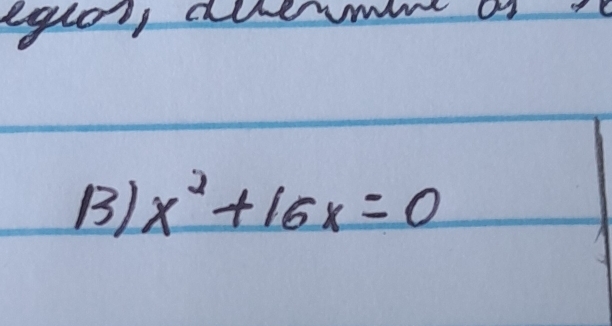 determine as
B) x² + 16x = 0